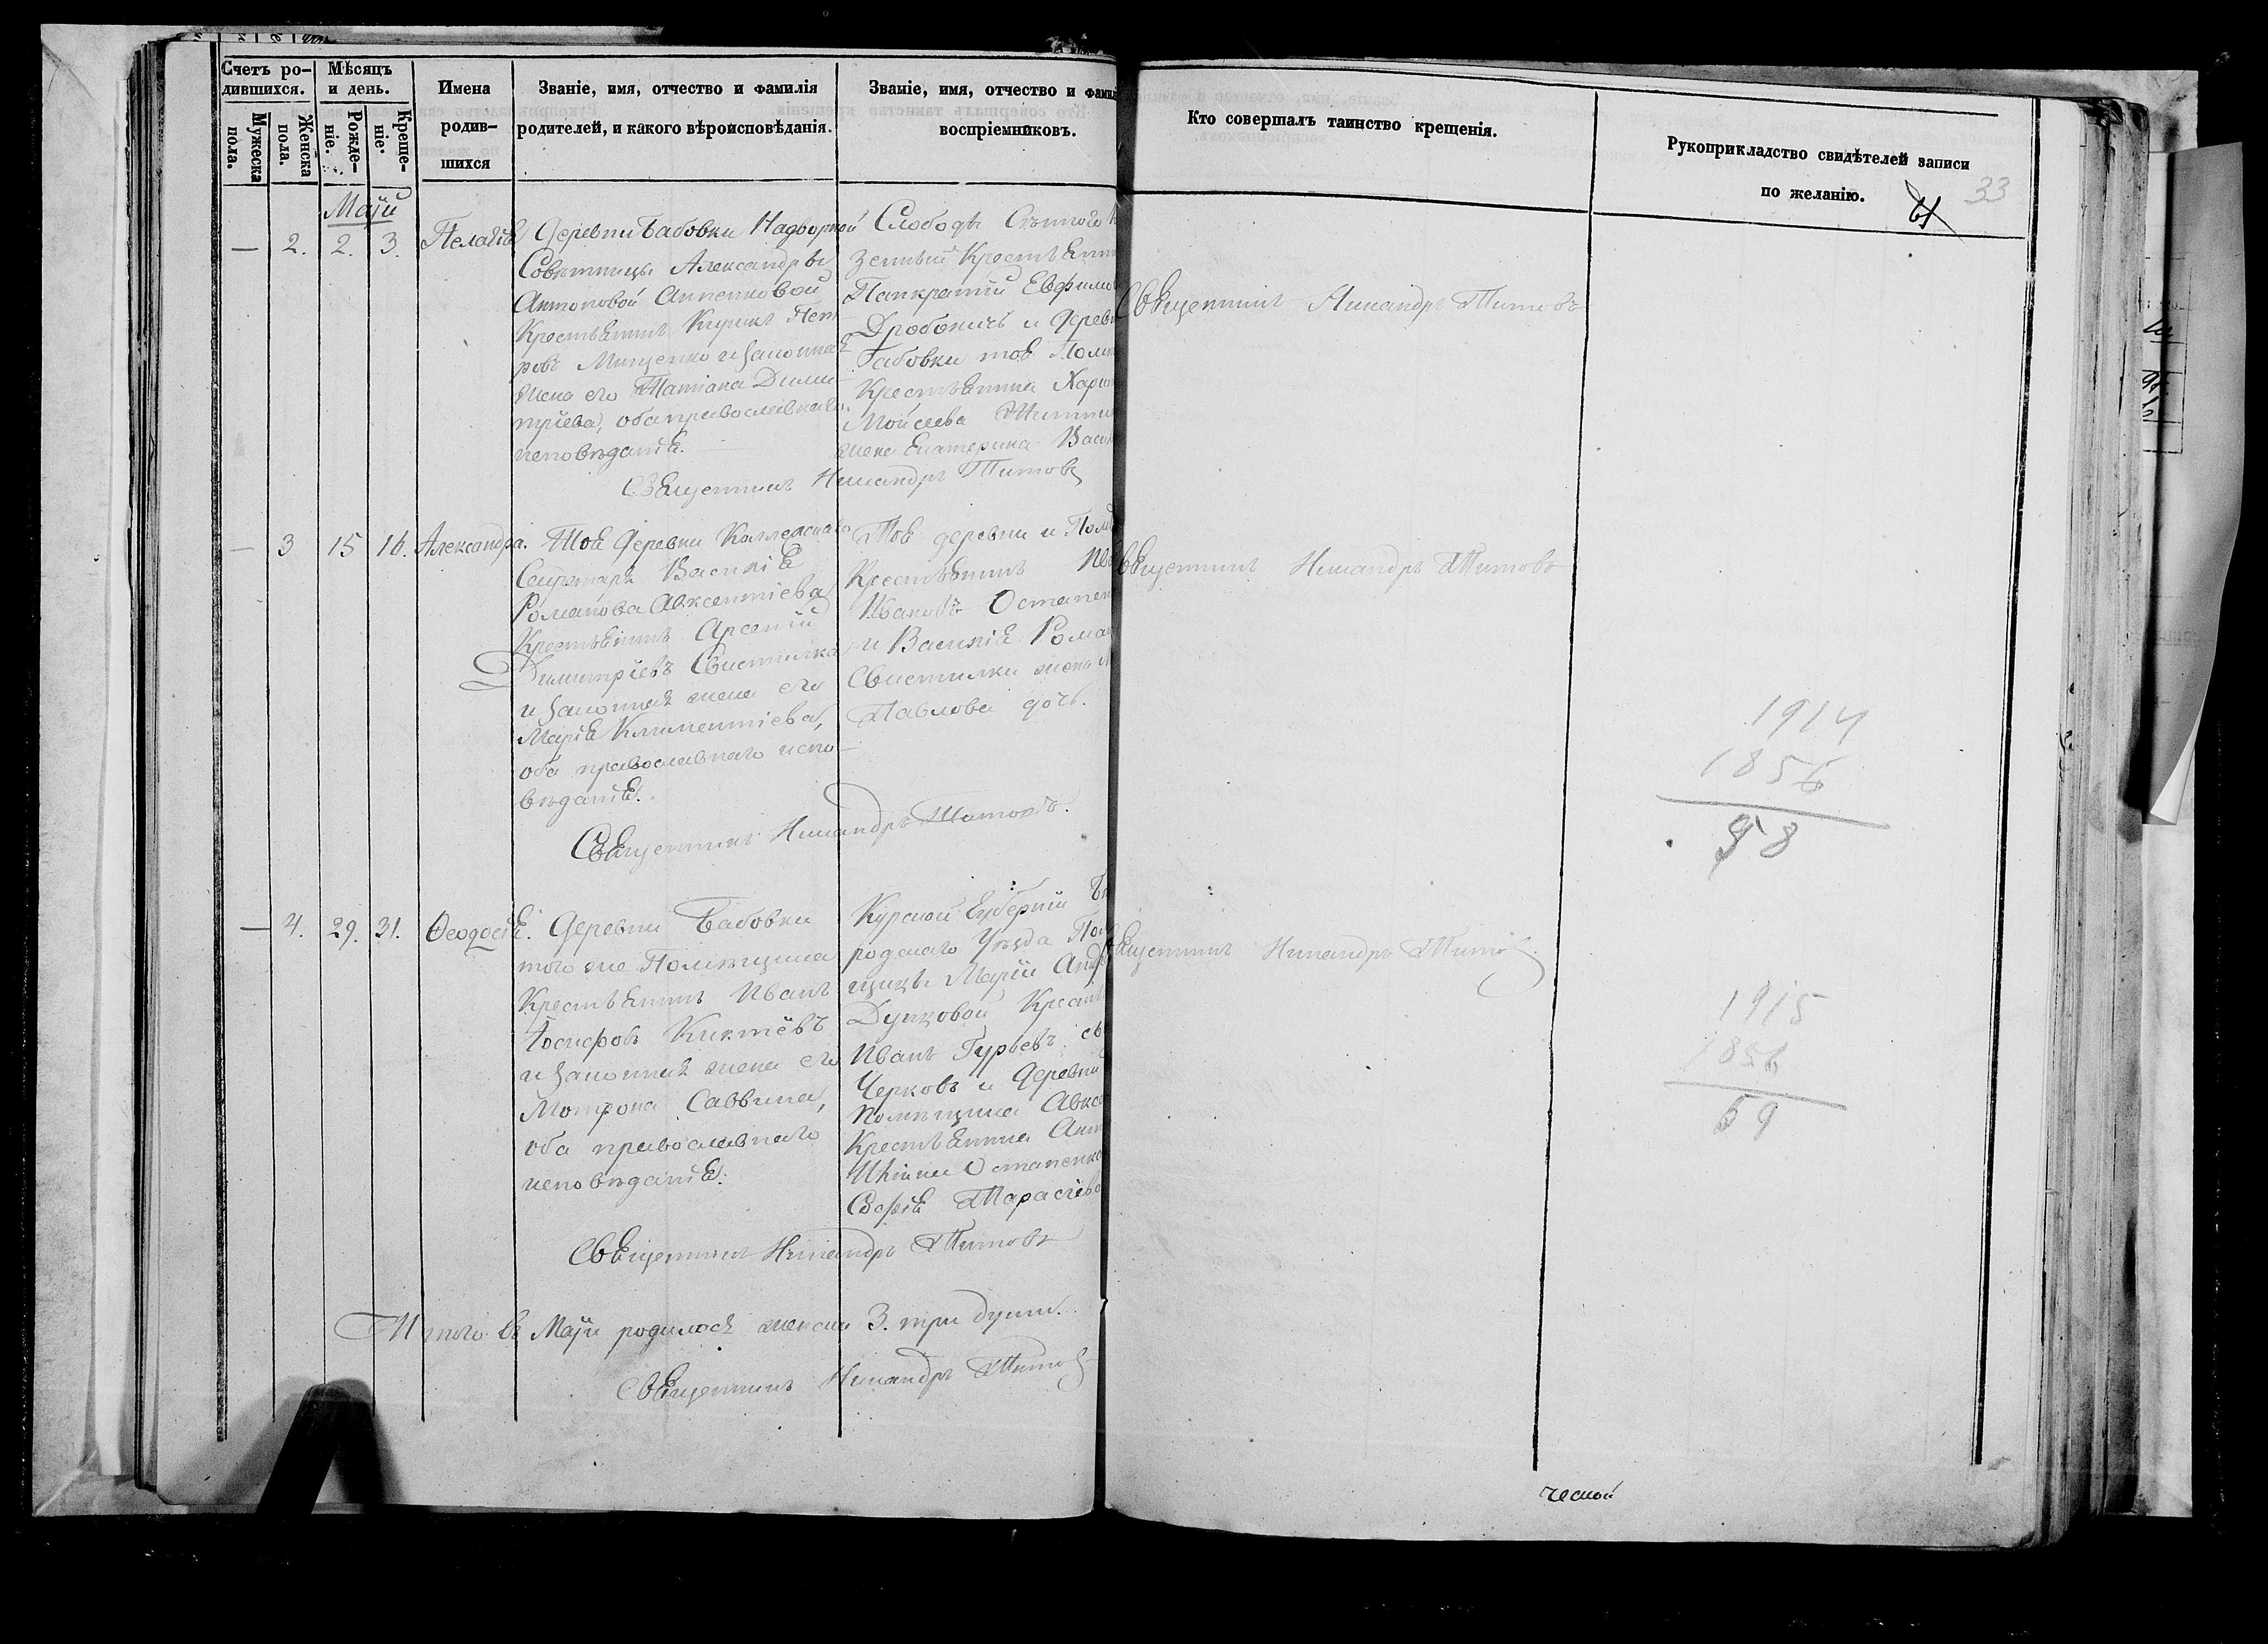 Счетъ ро-
дившихся.
Мужеска
пола.
Женска
пола.
Мѣсяцъ
и день.
Рожде-
ніе.
Креще-
ніе.
Имена
родив-
шихся
Званіе, имя, отчество и фамилія
родителей, и какого вѣроисповѣданія.
Званіе, имя, отчество и фами
воспріемниковъ.
Кто совершалъ таинство крещенія.
Рукоприкладство свидѣтелей записи
по желанію.
33
Маія
— 2. 2. 3. Пелагія
Деревни Бабовки Надворной
Совѣтницы Александры
Антоновой Анненковой
Крестьянинъ Кирикъ Пет
ровъ Мищенко и законная
жена его Татіана Дими
тріева, оба православнаго
исповѣданія.
Слободы
Крестьянин
Панкратій Евфимов
и дерев
Бабовки
Крестьянина Харит
Моисеева
жена Екатерина Васи
Священникъ Никандръ Титовъ
Священникъ Никандръ Титовъ
— 3 15 16. Александра.
Той деревни Коллежскаго
Секретаря Василія
Романова Авксентіева
Крестьянинъ Арсеній
Димитріевъ Свистилка
и законная жена его
Марія Климентіева,
оба православнаго испо-
вѣданія.
Той деревни и Помѣ
Крестьянинъ
Ивановъ Остапен
и Василія Роман
Свистилки жена
Павлова дочь.
Священникъ Никандръ Титовъ.
Священникъ Никандръ Титовъ
1914
1856
58
— 4. 29. 31. Ѳеодосія.
Деревни Бабовки
того же Помѣщика
Крестьянинъ Иванъ
Іосифовъ Киктёвъ
и законная жена его
Мотрона Саввина,
оба православнаго
исповѣданія.
Курской Губерніи
родскаго Уѣзда По
щицы Маріи Анд
Крестья
Иванъ Гурьевъ
и Деревни
Помѣщика Авкс
Крестьянина
Остапенк
Софія Тарасіева
Священникъ Никандръ Титовъ
Священникъ Никандръ Титов
1915
1856
59
Итого въ Маіи родилося женска 3. три души.
Священникъ Никандръ Титовъ
ческой